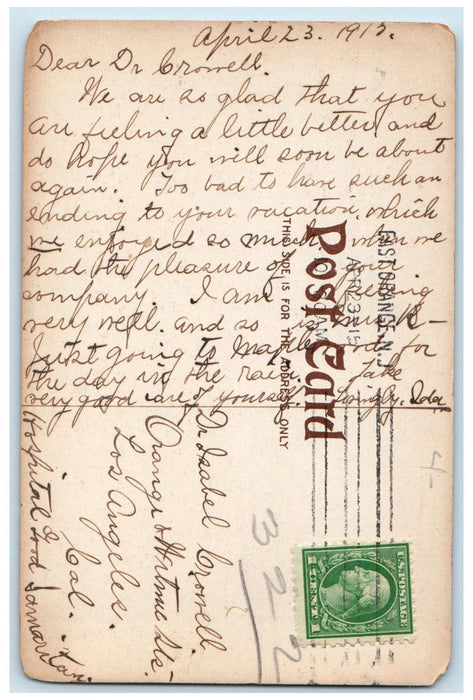 April 23. 1915.
Dear Dr Crowell.
We are so glad that you
are feeling a little better, and
do hope you will soon be about
again. Too bad to have such an
ending to your vacation, which
we enjoyed so much, when we
had the pleasure of your
company. I am feeling
very well. and so is
Just going to for
the day in the rain. Take
very good care of yourself. Lovingly. Ida
Post Card
THIS SIDE IS FOR THE ADDRESS ONLY
EAST ORANGE, N.J.
APR 23 1915
Dr Isabel Crowell.
Orange & Sts.
Los Angeles.
Cal.
Hospital Good Samaritan
322
4
U.S. POSTAGE
1 CENT 1